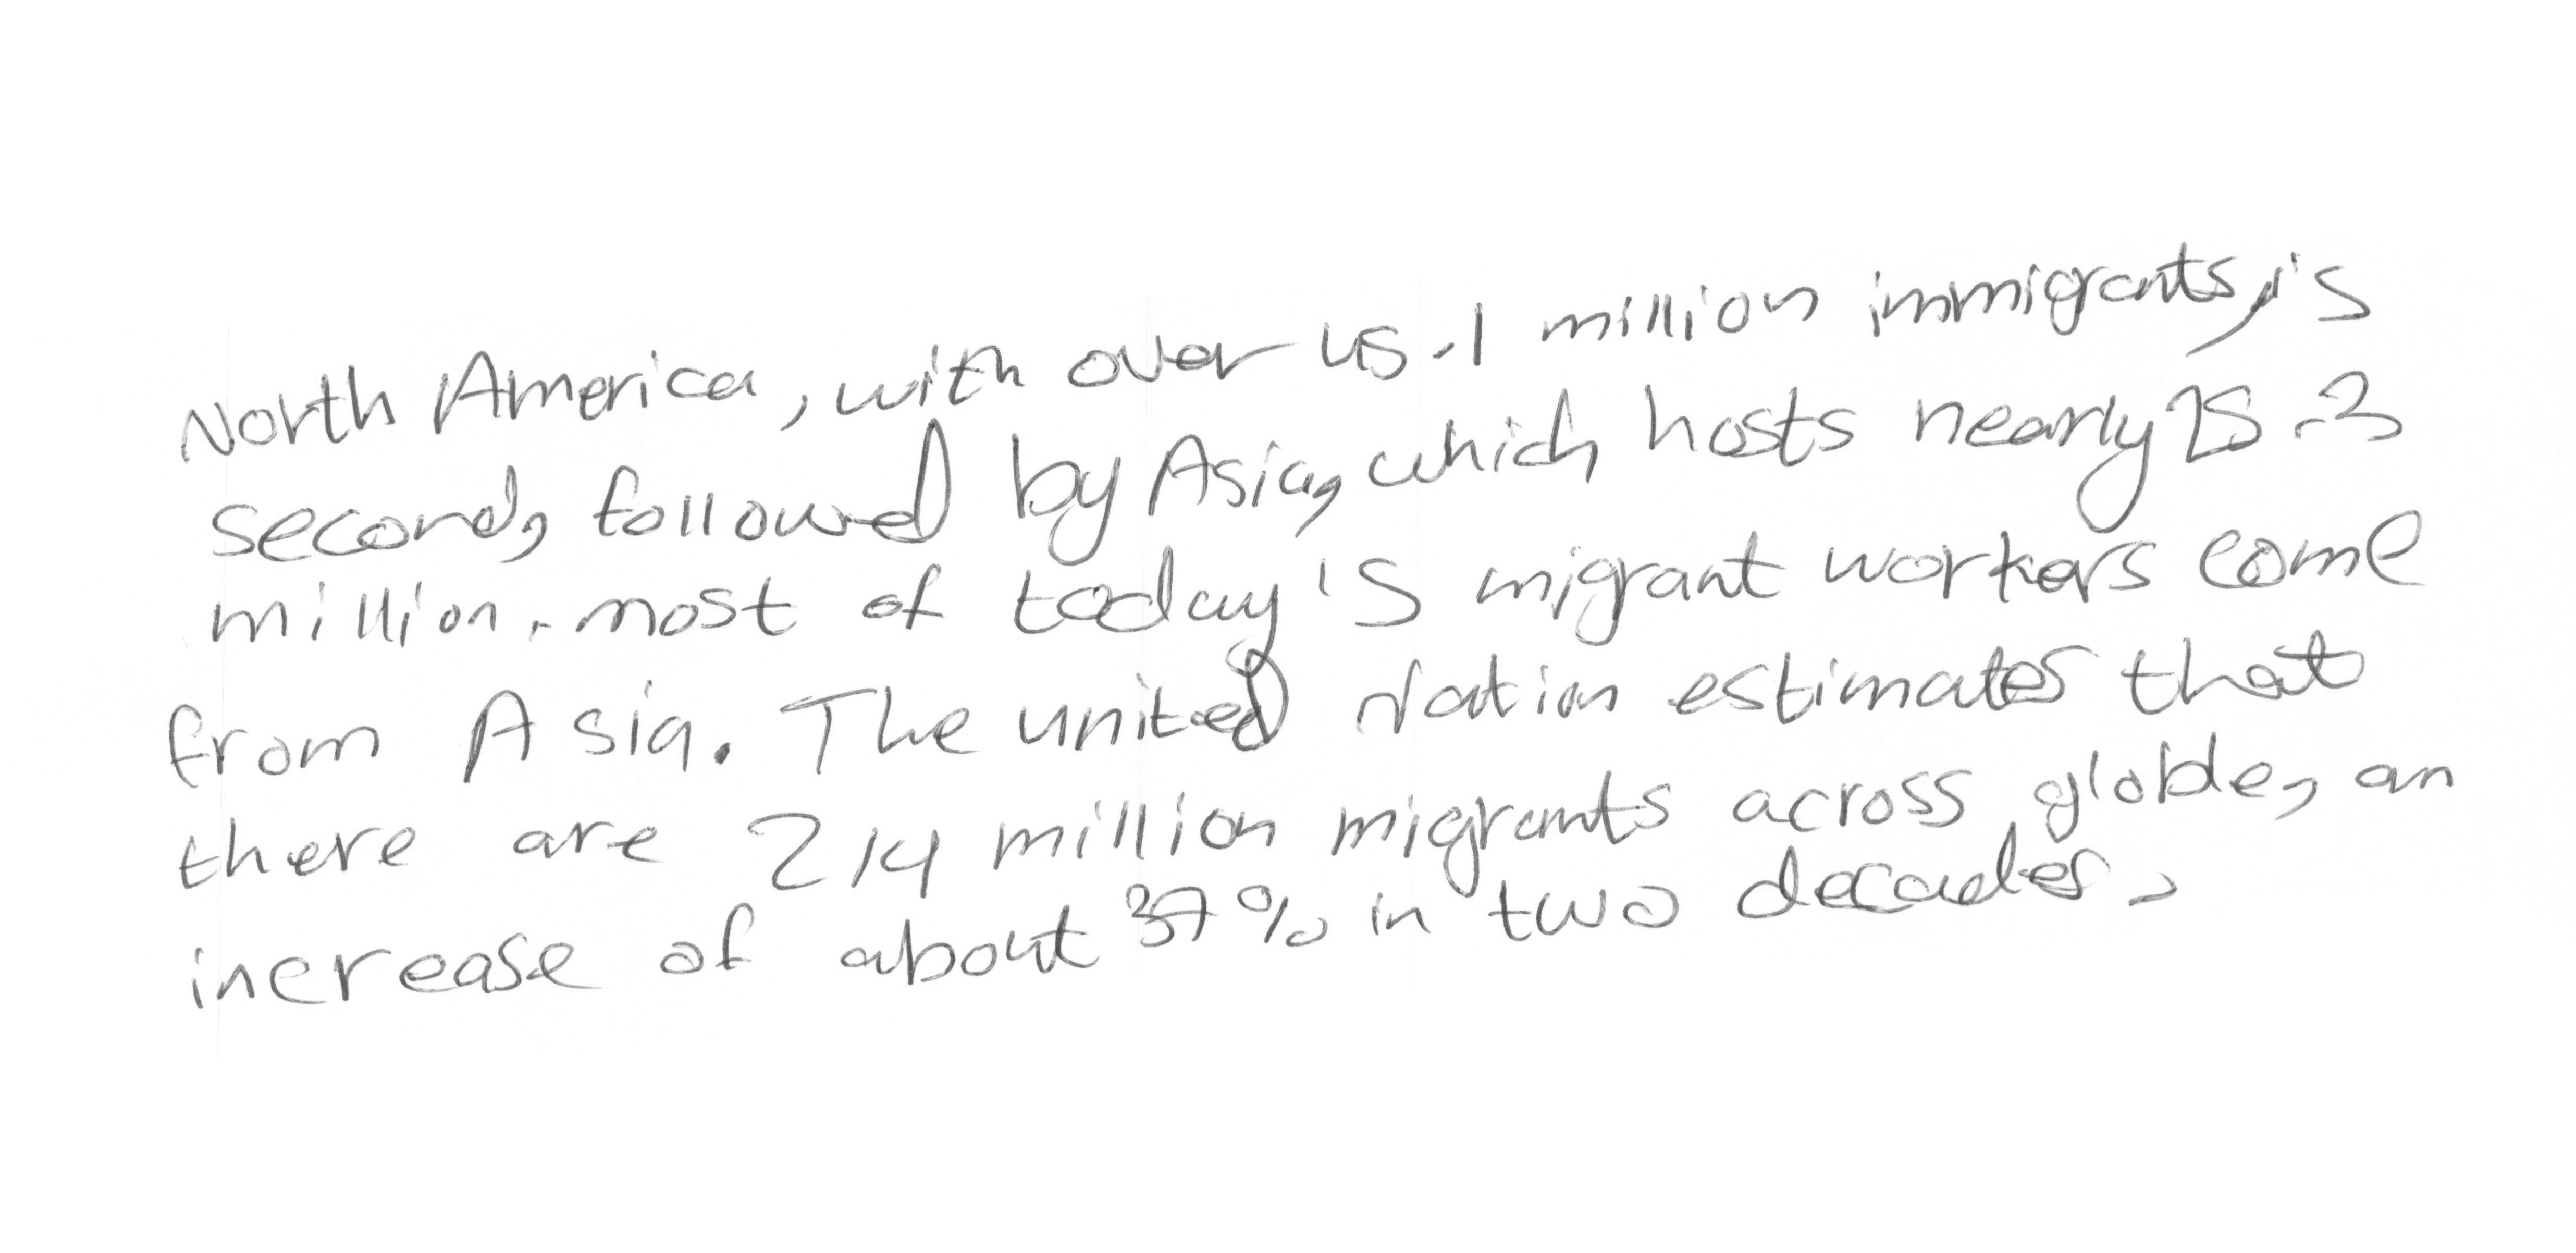 North America, with over 45.1 million immigrants, is
second, followed by Asia, which hosts nearly 25.3
million. most of today's migrant workers come
from Asia. The united Nation estimates that
there are 214 million migrants across globe, an
increase of about 37% in two decades.